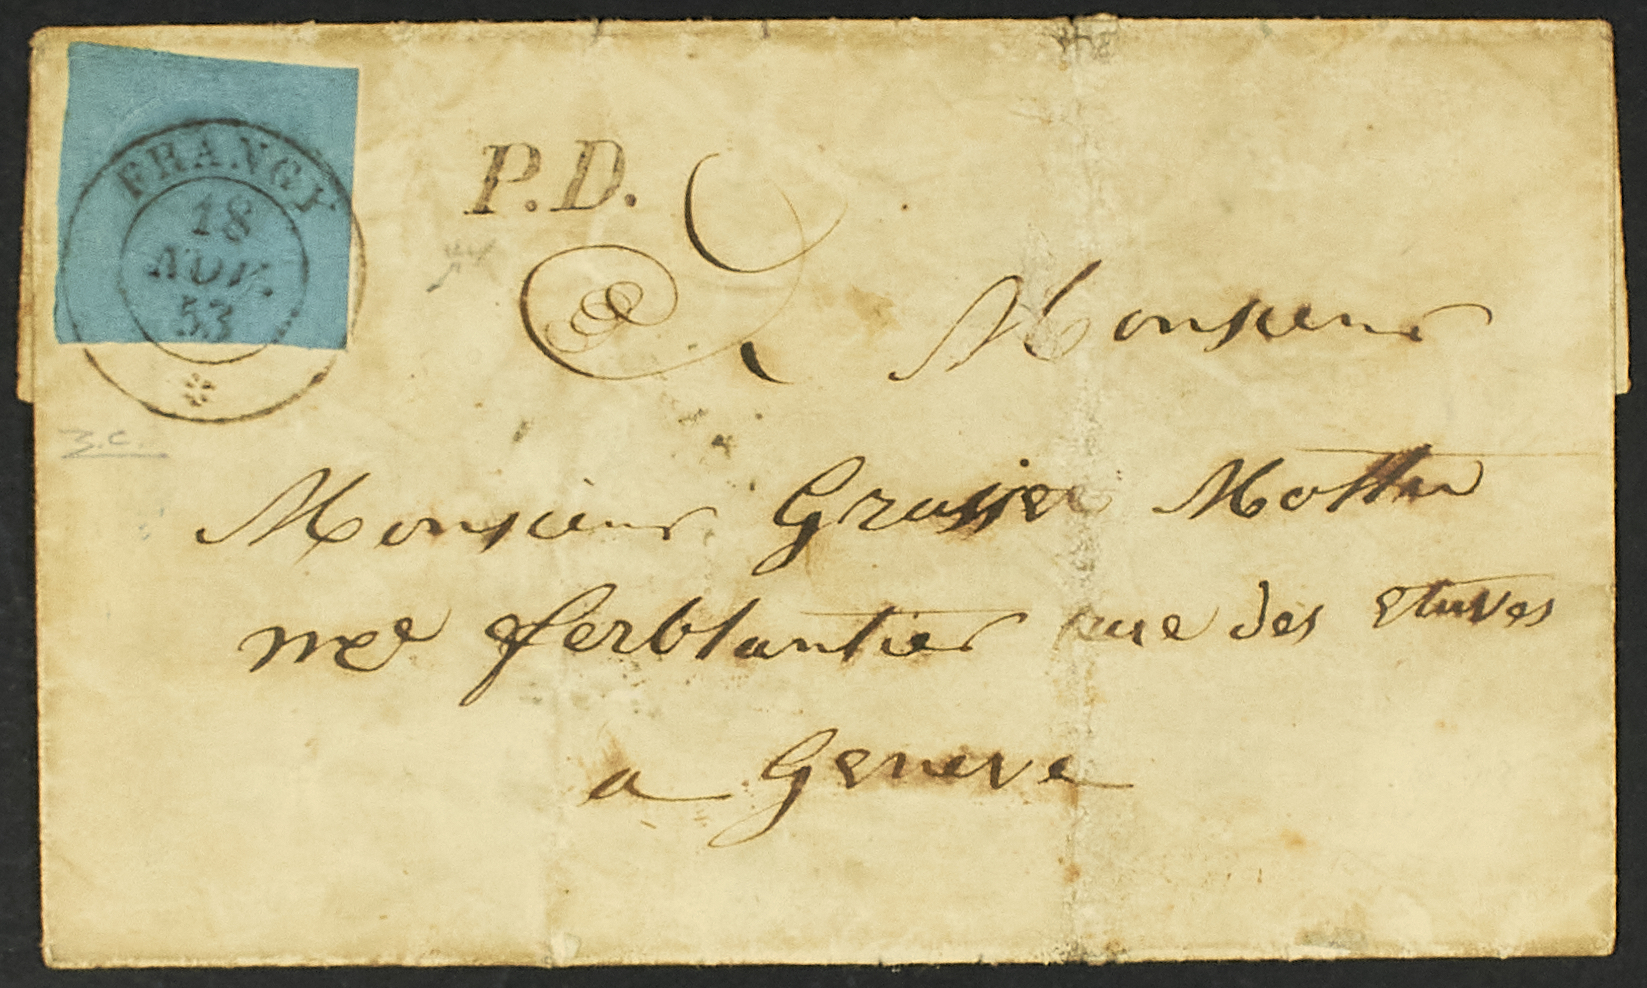 FRANGY
18
NOV.
53
P.D.
Monsieur
Monsieur Grasset Mottu
md ferblantier rue des Etuves
a Geneve